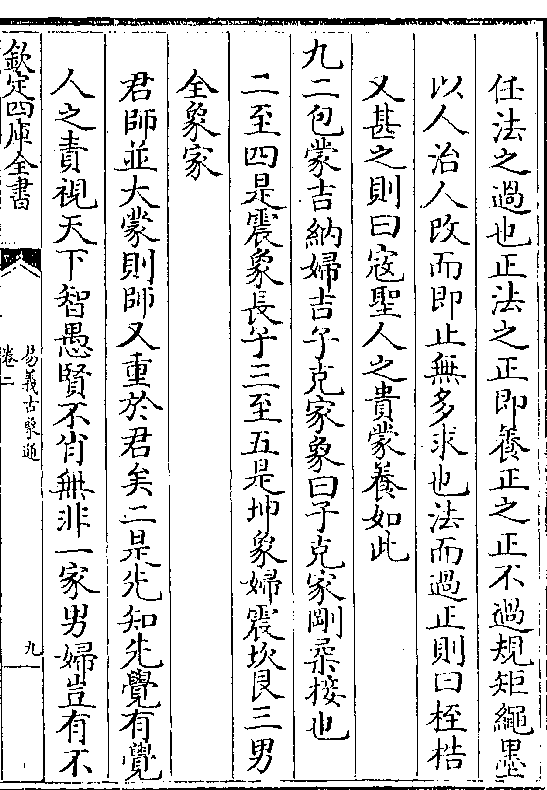 任法之過也正法之正即養正之正不過規矩繩墨
以人治人改而即止無多求也法而過正則曰桎梏
又甚之則曰寇聖人之貴蒙養如此
九二包蒙吉納婦吉子克家象曰子克家剛柔接也
二至四是震象長子三至五是坤象婦震坎艮三男
全象家
君師並大蒙則師又重於君矣二是先知先覺有覺
人之責視天下智愚賢不肖無非一家男婦豈有不
欽定四庫全書
易義古象通
卷二
九